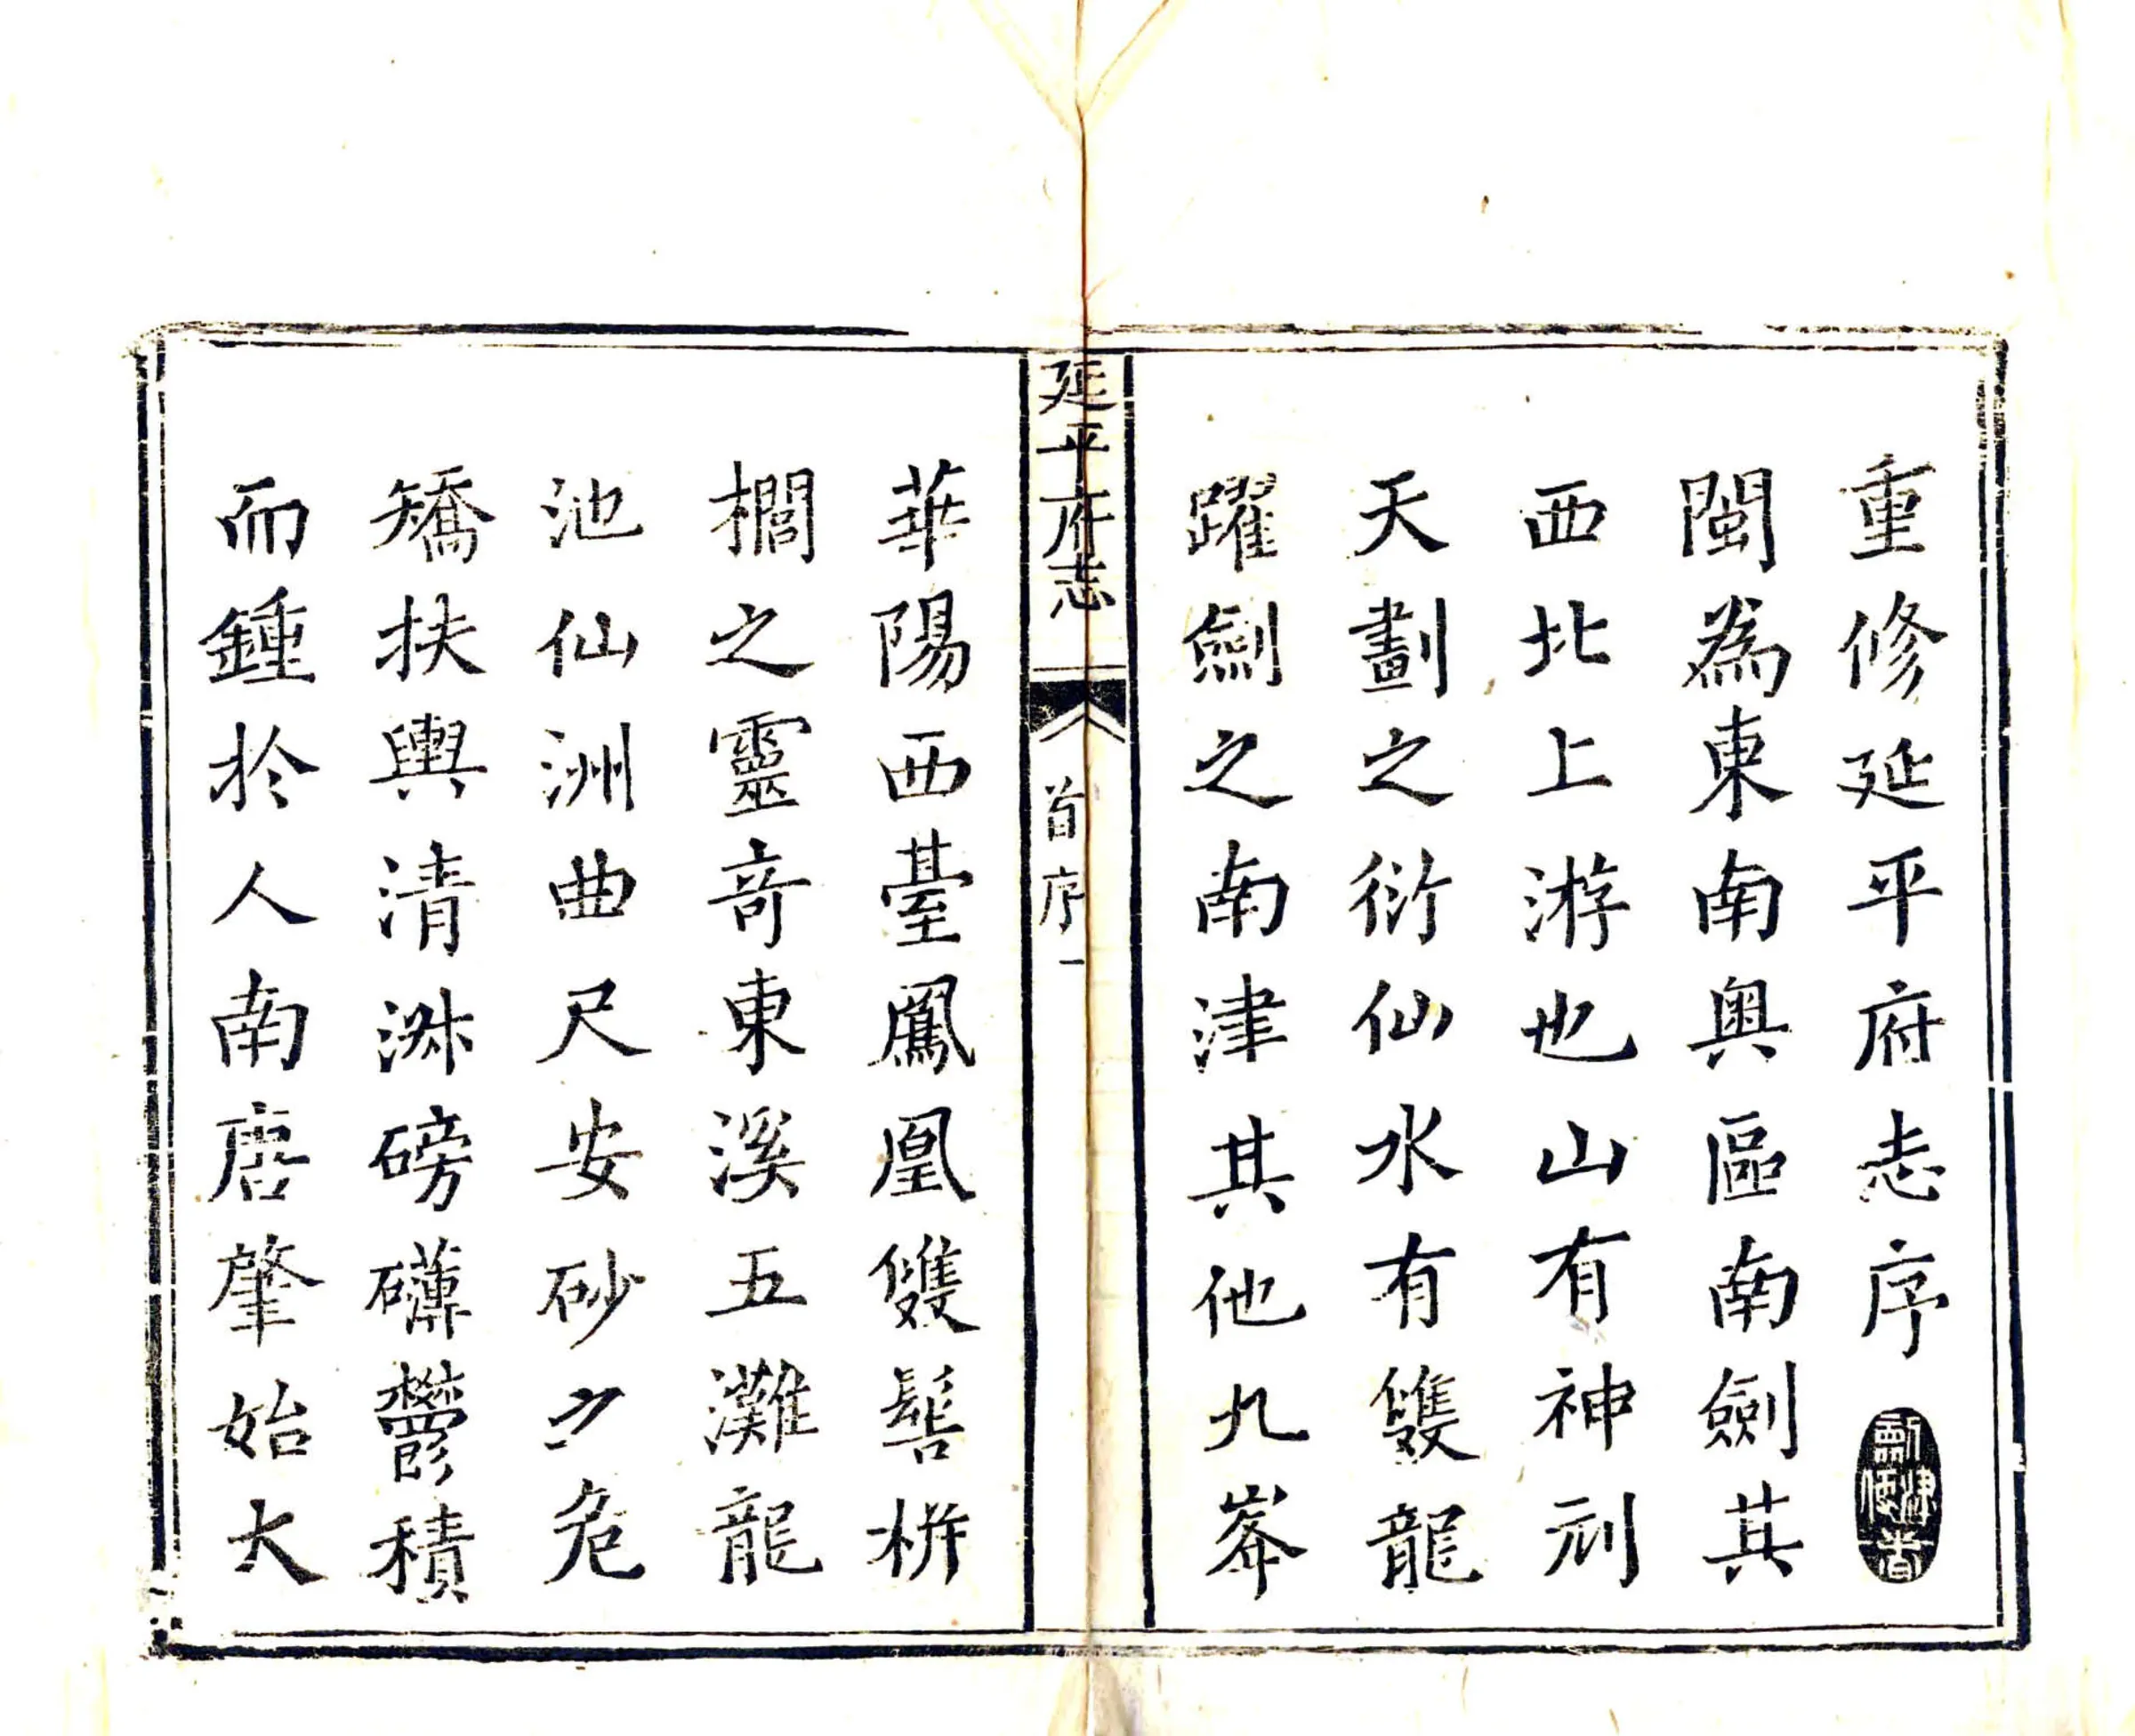 重修延平府志序
閩為東南奧區南劍其
西北上游也山有神刓
天劃之衍仙水有雙龍
躍劍之南津其他九峯
延平府志 首序 一
華陽西臺鳳凰雙髻栟
櫚之靈奇東溪五灘龍
池仙洲曲尺安砂之危
矯扶輿清淑磅礴鬱積
而鍾於人南唐肇始大